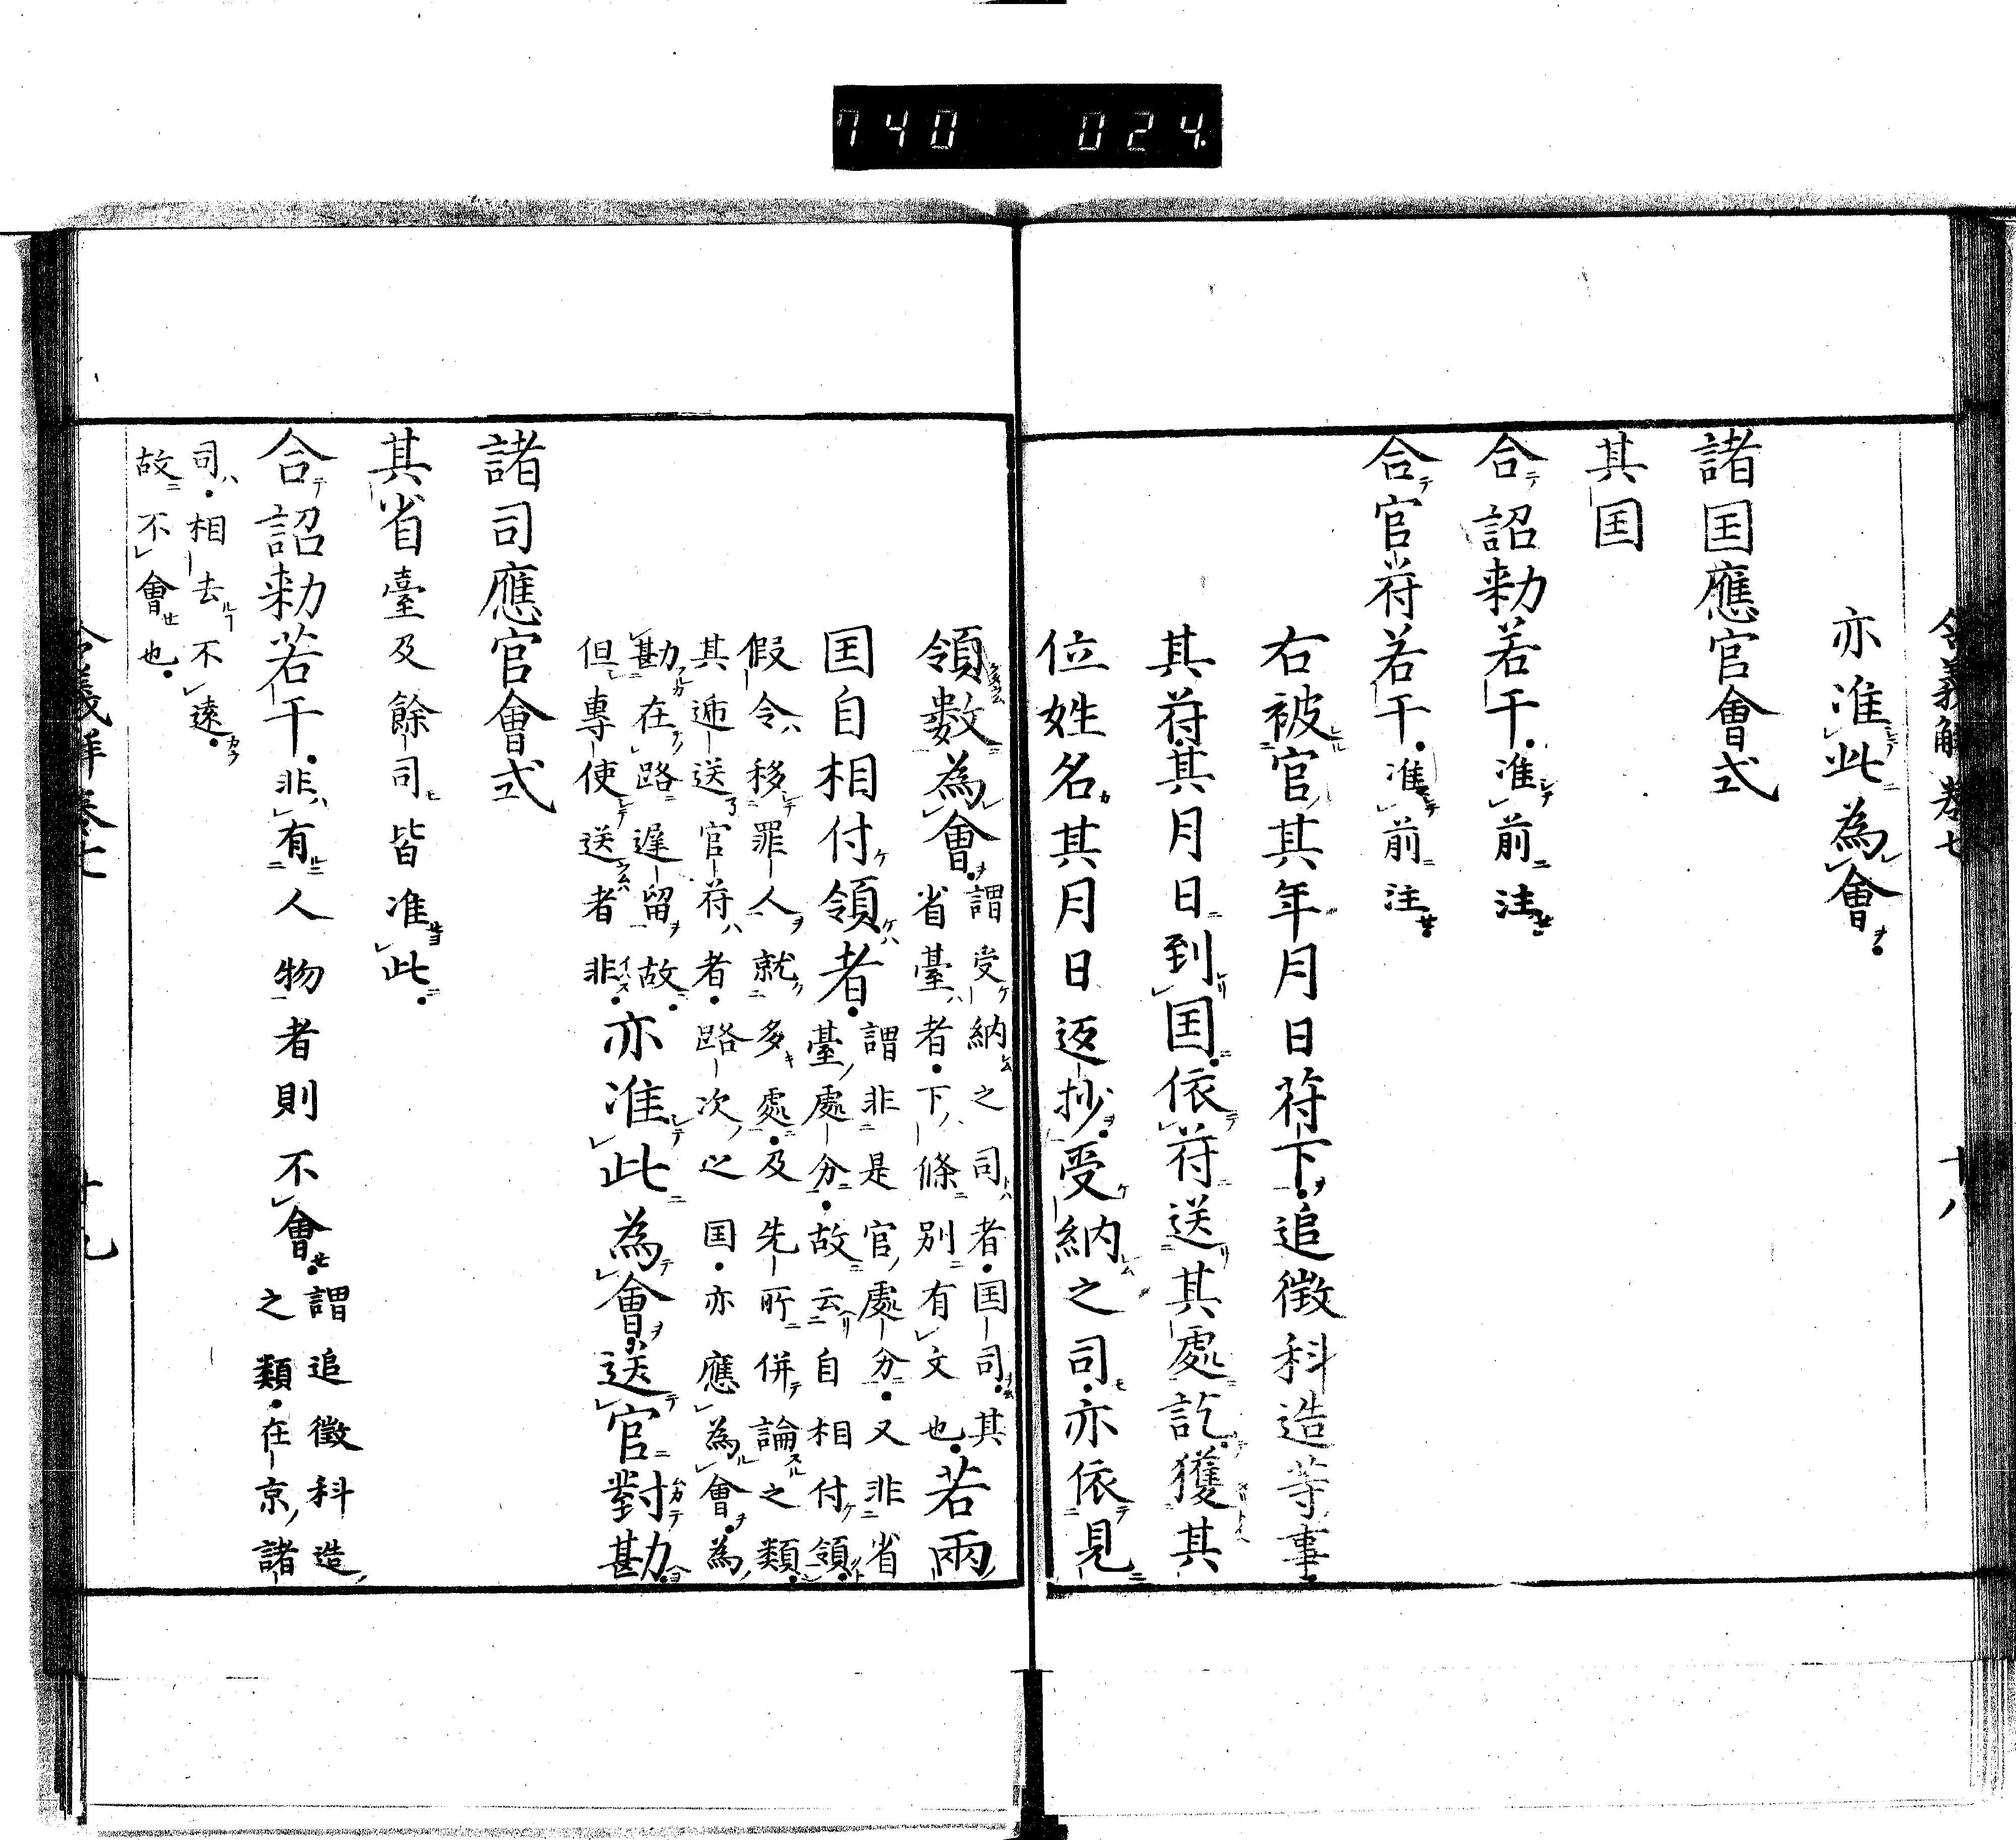 740 024
令義解卷七 十八
亦准此為會
諸囯應官會式
其囯
合詔勑若干准前注
合官符若干准前注
右被官其年月日符下追徴科造等事
其符其月日到囯依符送其處訖獲其
位姓名其月日返抄受納之司亦依見
領數為會謂受納之司者囯司其
省臺者下條別有文也若兩
囯自相付領者謂非是官處分又非省
臺處分故云自相付領
假令移罪人就多處及先所併論之類
其逓送官符者路次之囯亦應為會為
勘在路遅留故
但專使送者非亦准此為會送官對勘
諸司應官會式
其省臺及餘司皆准此
合詔勑若干非有人物者則不會謂追徴科造
之類在京諸
司相去不遠
故不會也